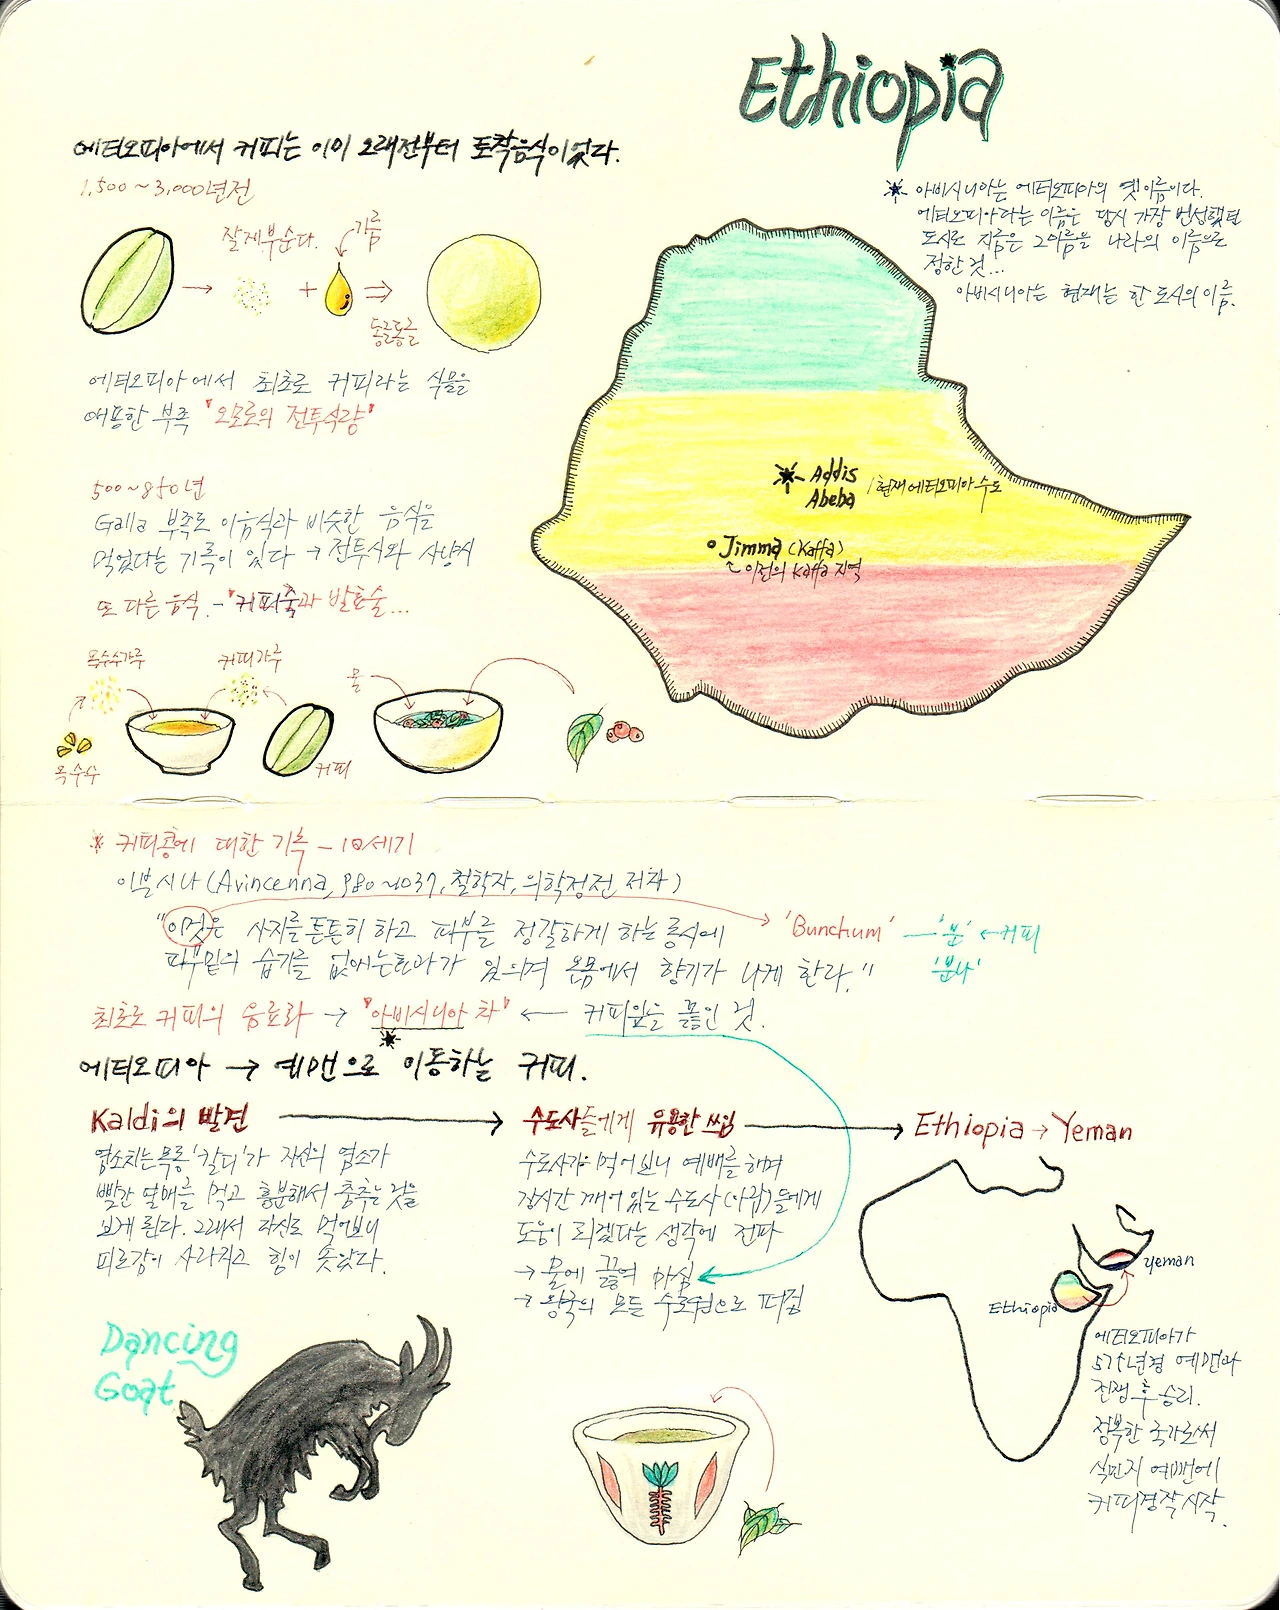 Ethiopia
에티오피아에서 커피는 이미 오래전부터 토착음식이었다.
1,500~3,000년전
잘게부순다.
기름
+
동글동글
에티오피아에서 최초로 커피라는 식물을
애용한 부족 "오모로의 전투식량"
500~850년
Galla 부족도 이음식과 비슷한 음식을
먹었다는 기록이 있다 → 전투시와 사냥시
또 다른 음식 - "커피죽과 발효술...
옥수수가루
커피가루
물
옥수수
커피
* 아비시니아는 에티오피아의 옛이름이다.
에티오피아라는 이름은 당시 가장 번성했던
도시로 지금은 그이름을 나라의 이름으로
정한 것...
아비시니아는 현재는 한 도시의 이름.
Addis
Abeba / 현재 에티오피아 수도
Jimma (Kaffa)
이전의 Kaffa 지역
* 커피콩에 대한 기록 - 10세기
이븐시나 (Avincenna, 980~1037, 철학자, 의학정전 저자)
"이것은 사지를 튼튼히 하고 피부를 정갈하게 하는 동시에
피부밑의 습기를 없애는 효과가 있으며 온몸에서 향기가 나게 한다."
'Bunchum' — '분' ← 커피
'분나'
최초로 커피의 음료화 → "아비시니아 차" ← 커피잎을 끓인 것.
에티오피아 → 예맨으로 이동하는 커피.
Kaldi의 발견
염소치는 목동 '칼디'가 자신의 염소가
빨간 열매를 먹고 흥분해서 춤추는 것을
보게 된다. 그래서 자신도 먹어보니
피로감이 사라지고 힘이 솟았다.
수도사들에게 유용한 쓰임
수도사가 먹어보니 예배를 하며
장시간 깨어 있는 수도사(이슬람)들에게
도움이 되겠다는 생각에 전파
→ 물에 끓여 마심
→ 왕국의 모든 수도원으로 퍼짐
Ethiopia → Yeman
Yeman
Ethiopia
에티오피아가
575년경 예맨과
전쟁 후 승리.
정복한 국가로써
식민지 예맨에
커피경작 시작.
Dancing
Goat